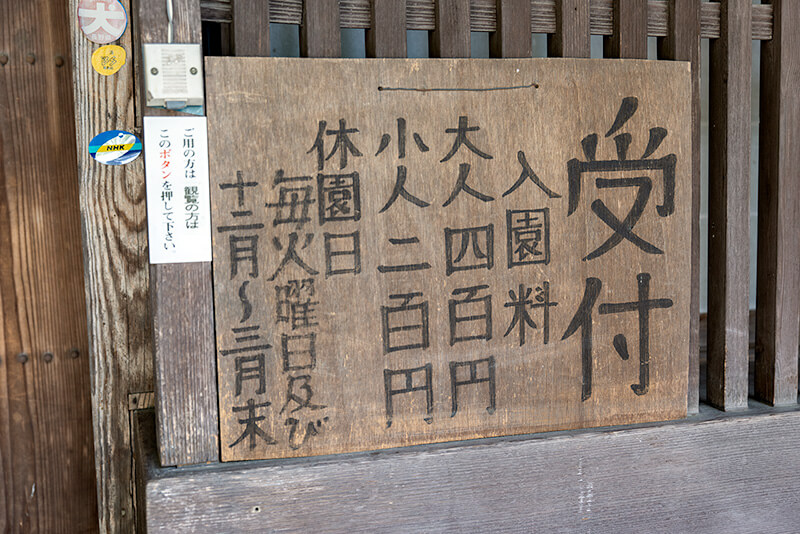 受付
入園料
大人四百円
小人二百円
休園日
毎火曜日及び
十二月～三月末
ご用の方は 観覧の方は
このボタンを押して下さい
犬
NHK